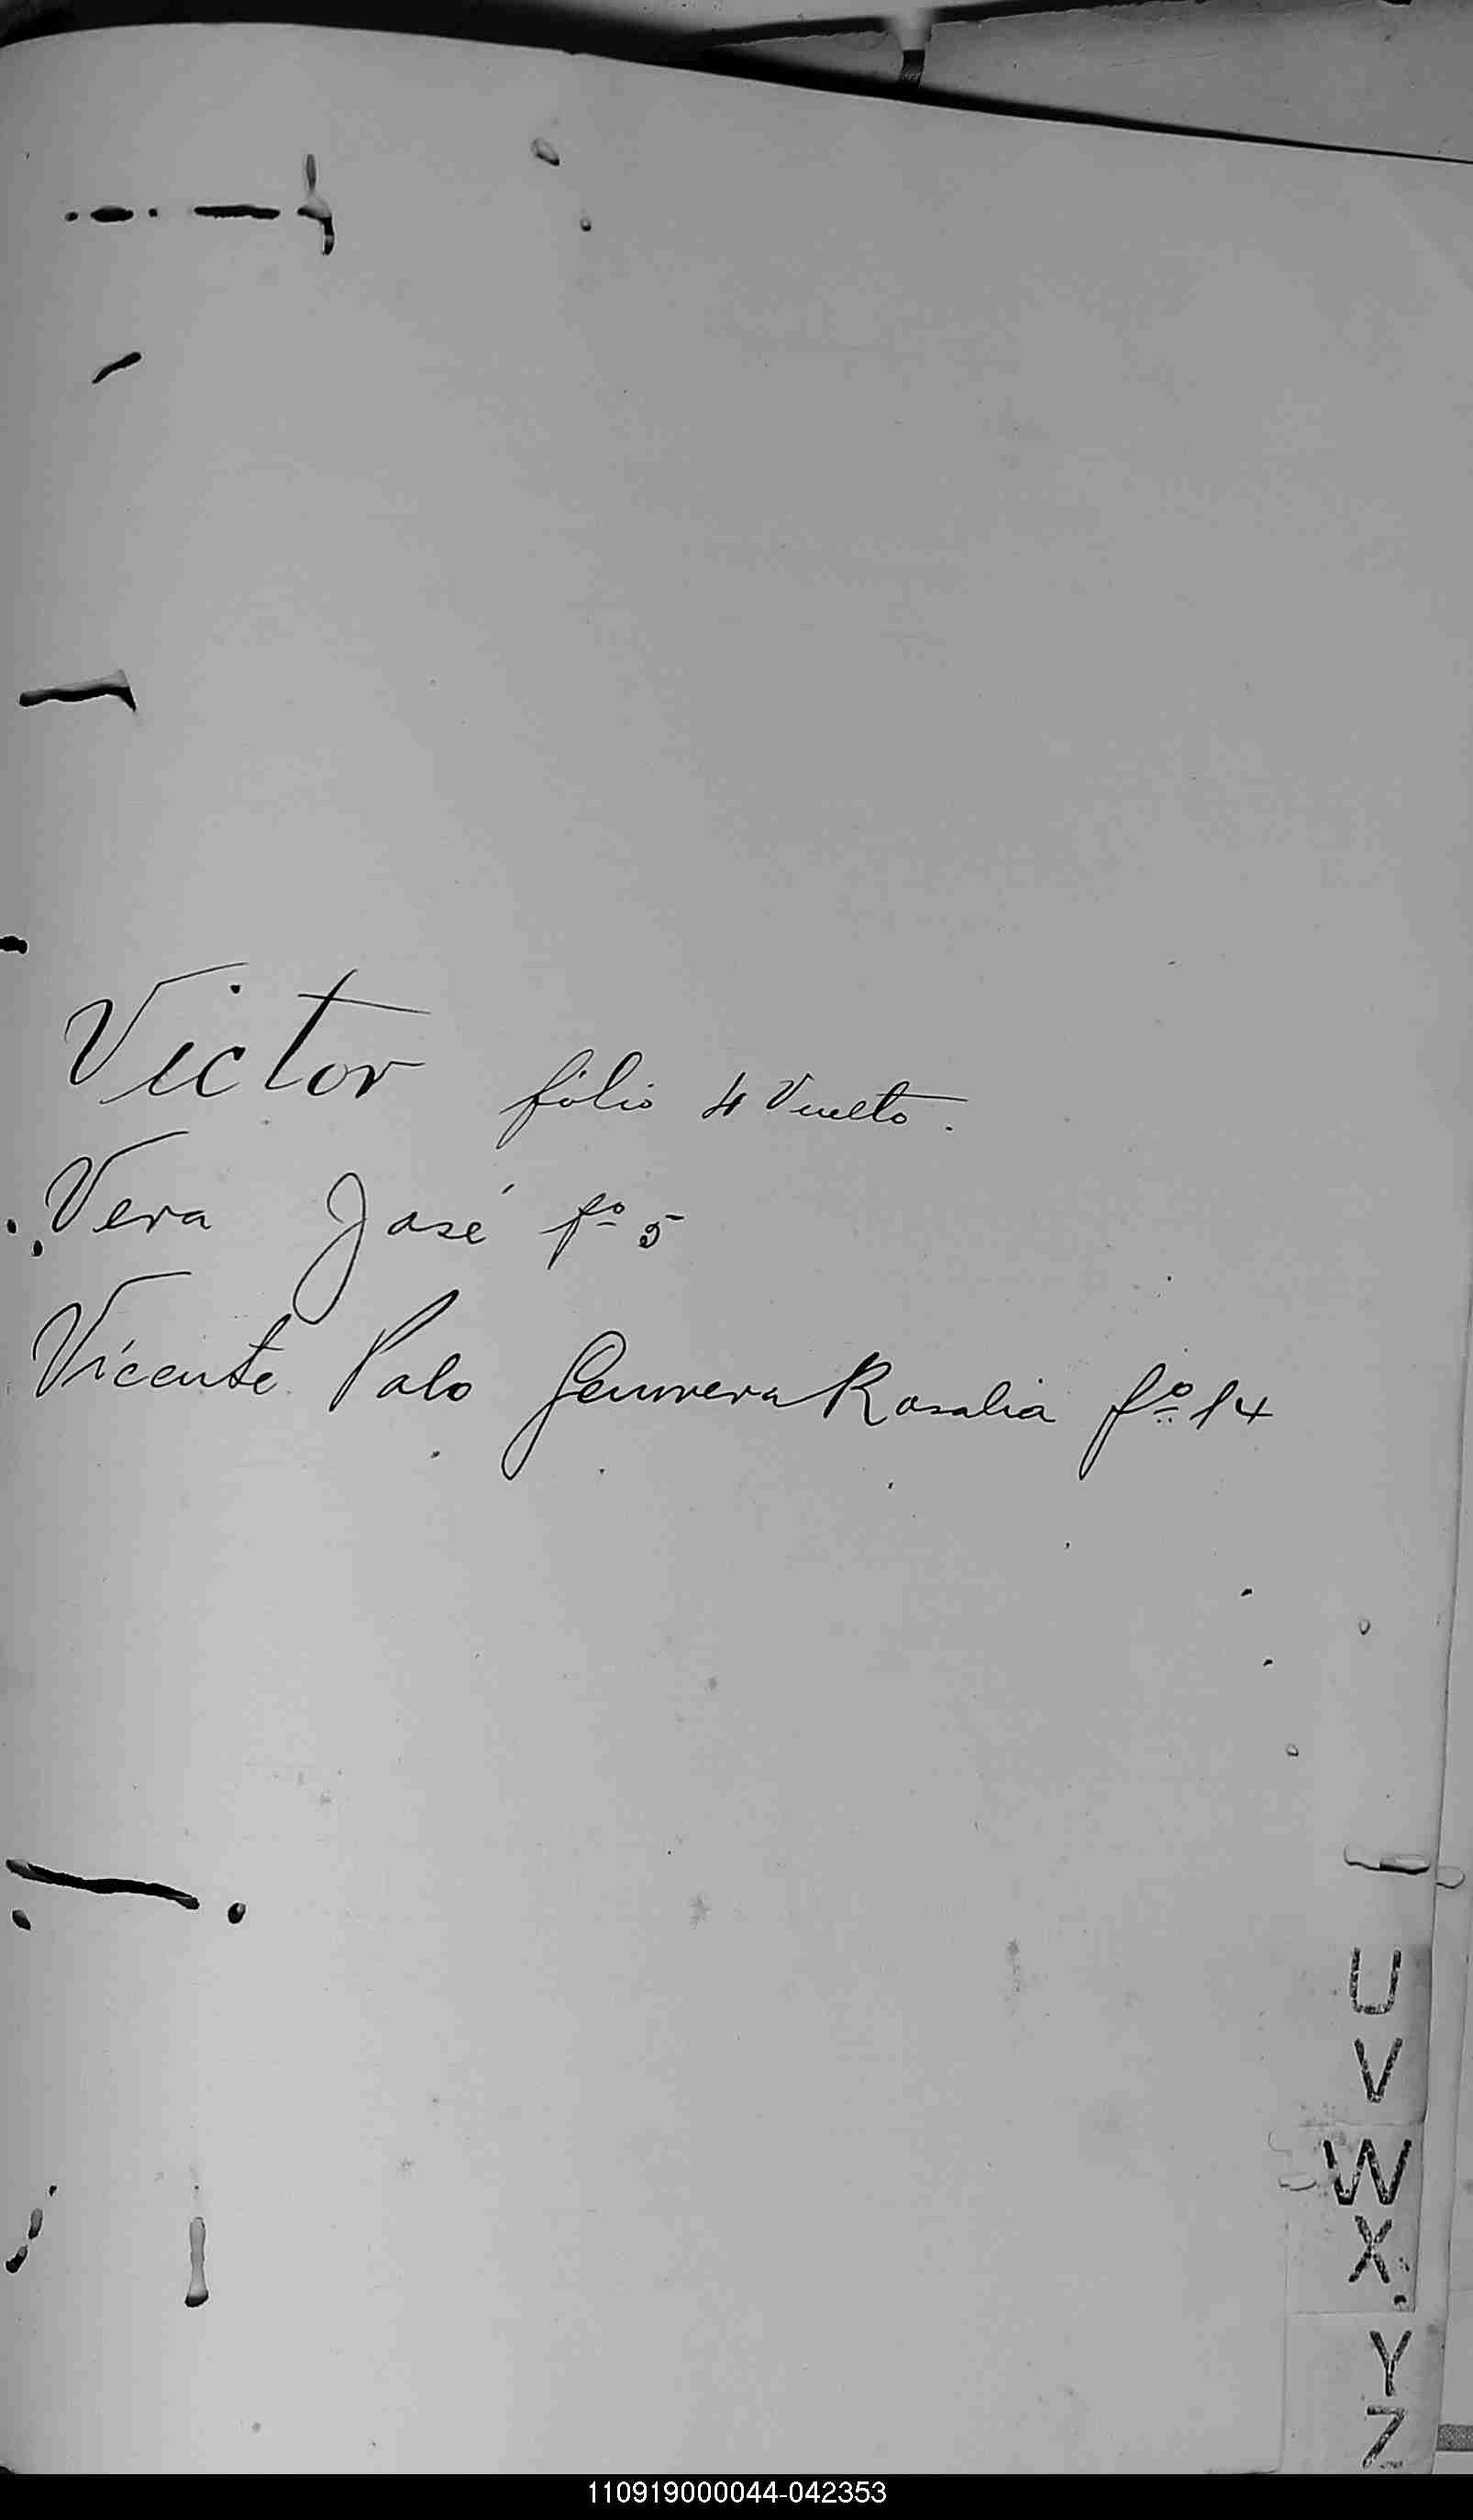 Victor folio 4 Vuelto.
Vera José fº 5
Vicente Palo Rosalia fº 14
U
V
W
X
Y
Z
110919000044-042353